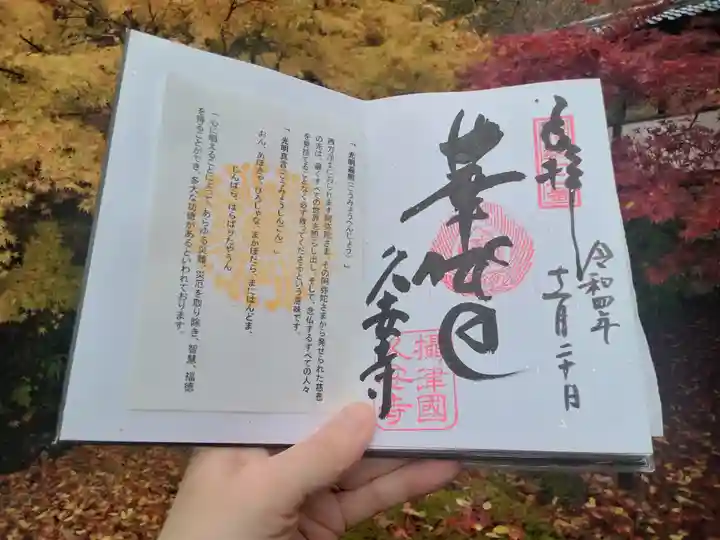 奉拝
令和四年
十一月二十日
久安寺
攝津國
久安寺
「光明遍照（こうみょうへんじょう）」
西方浄土におられます阿弥陀さま、その阿弥陀さまから発せられた慈悲
の光は、遍くすべての世界を照らし出し、そして、念仏するすべての人々
を見捨てることなく必ず救ってくださるという意味です。
「光明真言（こうみょうしんごん）」
おん、あぼきゃ、びろしゃな、まかぼだら、まにはんどま、
じんばら、はらばりたやうん
「心に唱えることによって、あらゆる災難、災厄を取り除き、智慧、福徳
を得ることができ、多大な功徳があるといわれております。